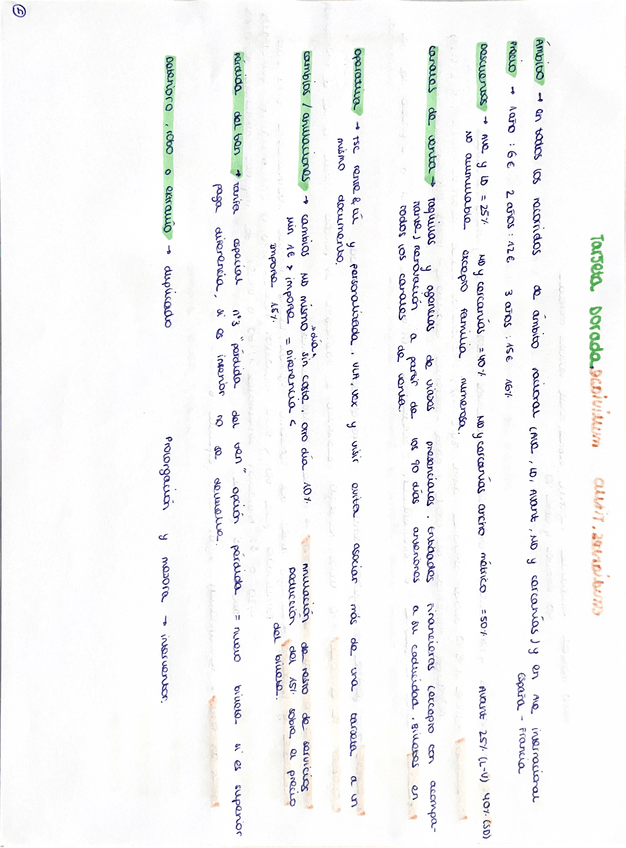 Tarjeta Dorada
Ámbito → en todos los recorridos de ámbito nacional (AVE, LD, Avant, MD y cercanías) y en AVE internacional
España - Francia
Precio → 1 año : 6€ 2 años : 12€ 3 años : 15€ 16%
Descuentos → AVE y LD = 25% MD y cercanías = 40% MD y cercanías ancho métrico = 50% Avant 25% (L-V) 40% (SD)
No acumulable excepto familia numerosa.
Canales de venta → taquillas y agencias de viajes presenciales, entidades financieras (excepto con acompa-
ñante) renovación a partir de los 90 días anteriores a su caducidad. Billetes en
todos los canales de venta.
Operativa → TSC renfe & tú y personalizada, VLA, vex y visir evita asociar más de una tarjeta a un
mismo documento.
Cambios / anulaciones → cambios MD mismo día sin coste, otro día 10% Anulación de resto de servicios
min 1€ > importe = Diferencia < Deducción del 15% sobre el precio
importe 15% del billete.
Pérdida del tren → tarifa especial nº3 "pérdida del tren" opción pérdida = nuevo billete si es superior
paga diferencia, si es inferior no se devuelve.
Deterioro, robo o extravío → duplicado Prolongación y mejora → interventor.